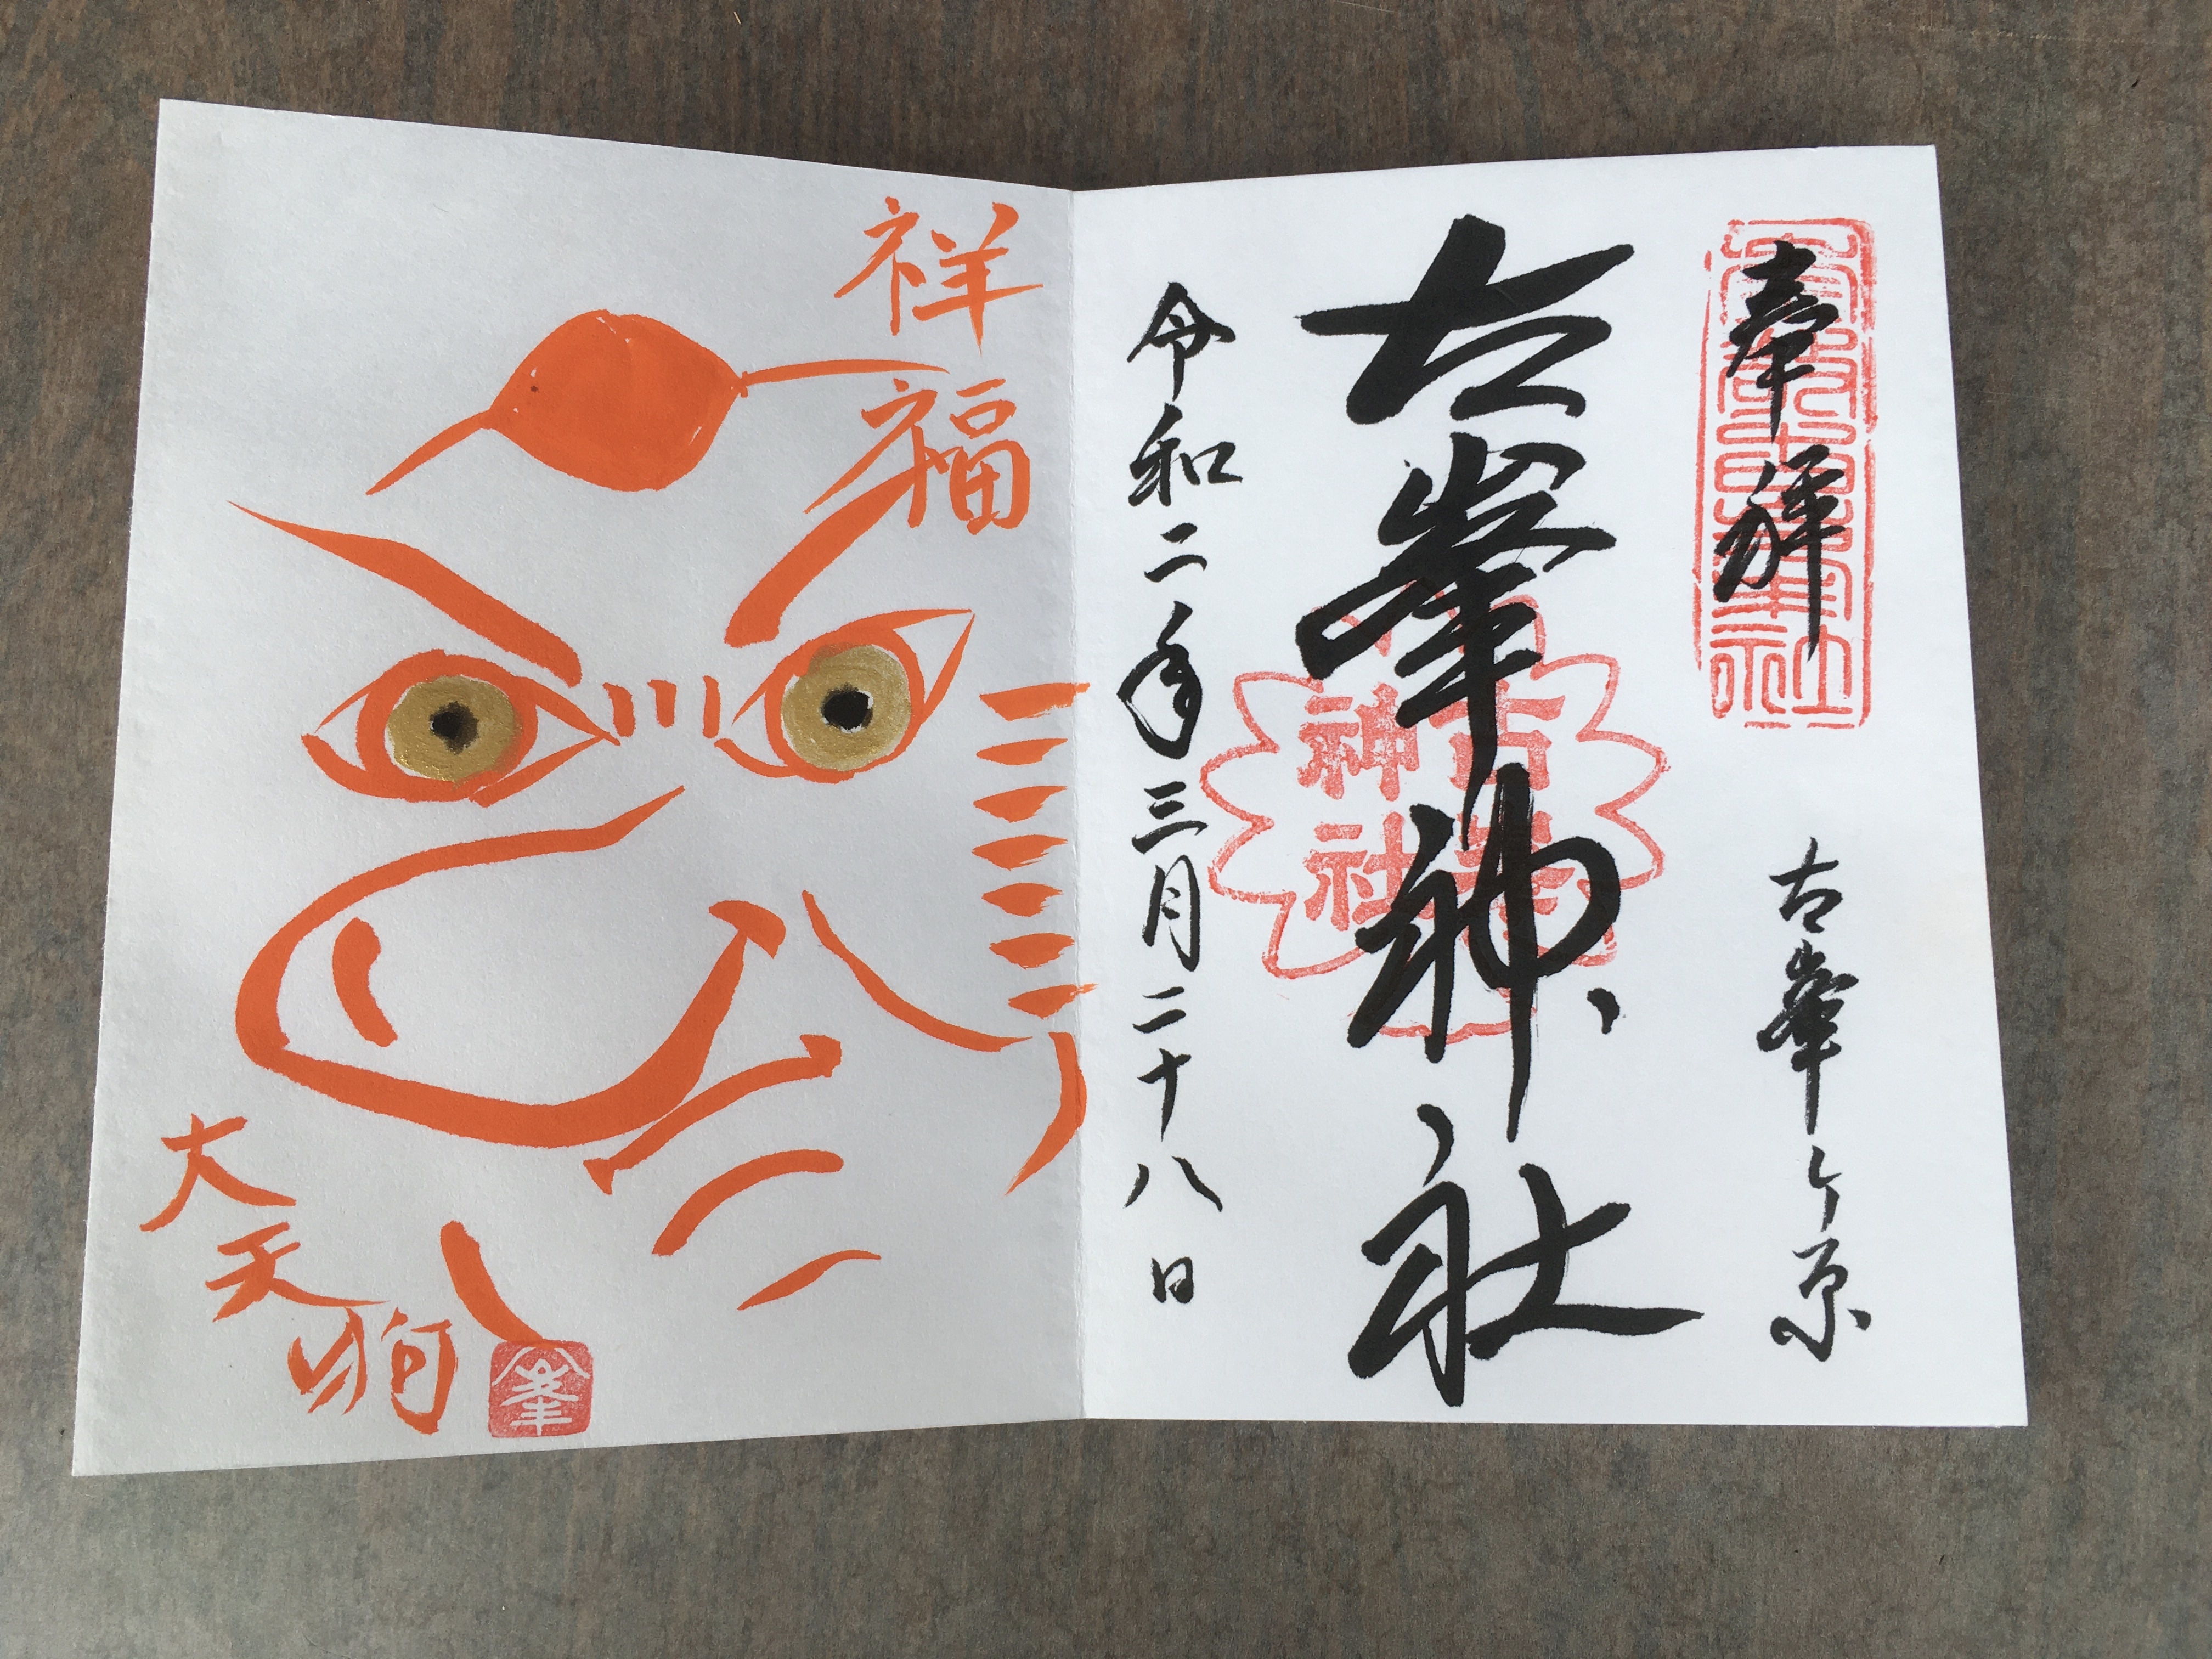 奉拝
古峯ヶ原
古峯神社
古峯神社
令和二年三月二十八日
祥福
大天狗
峯